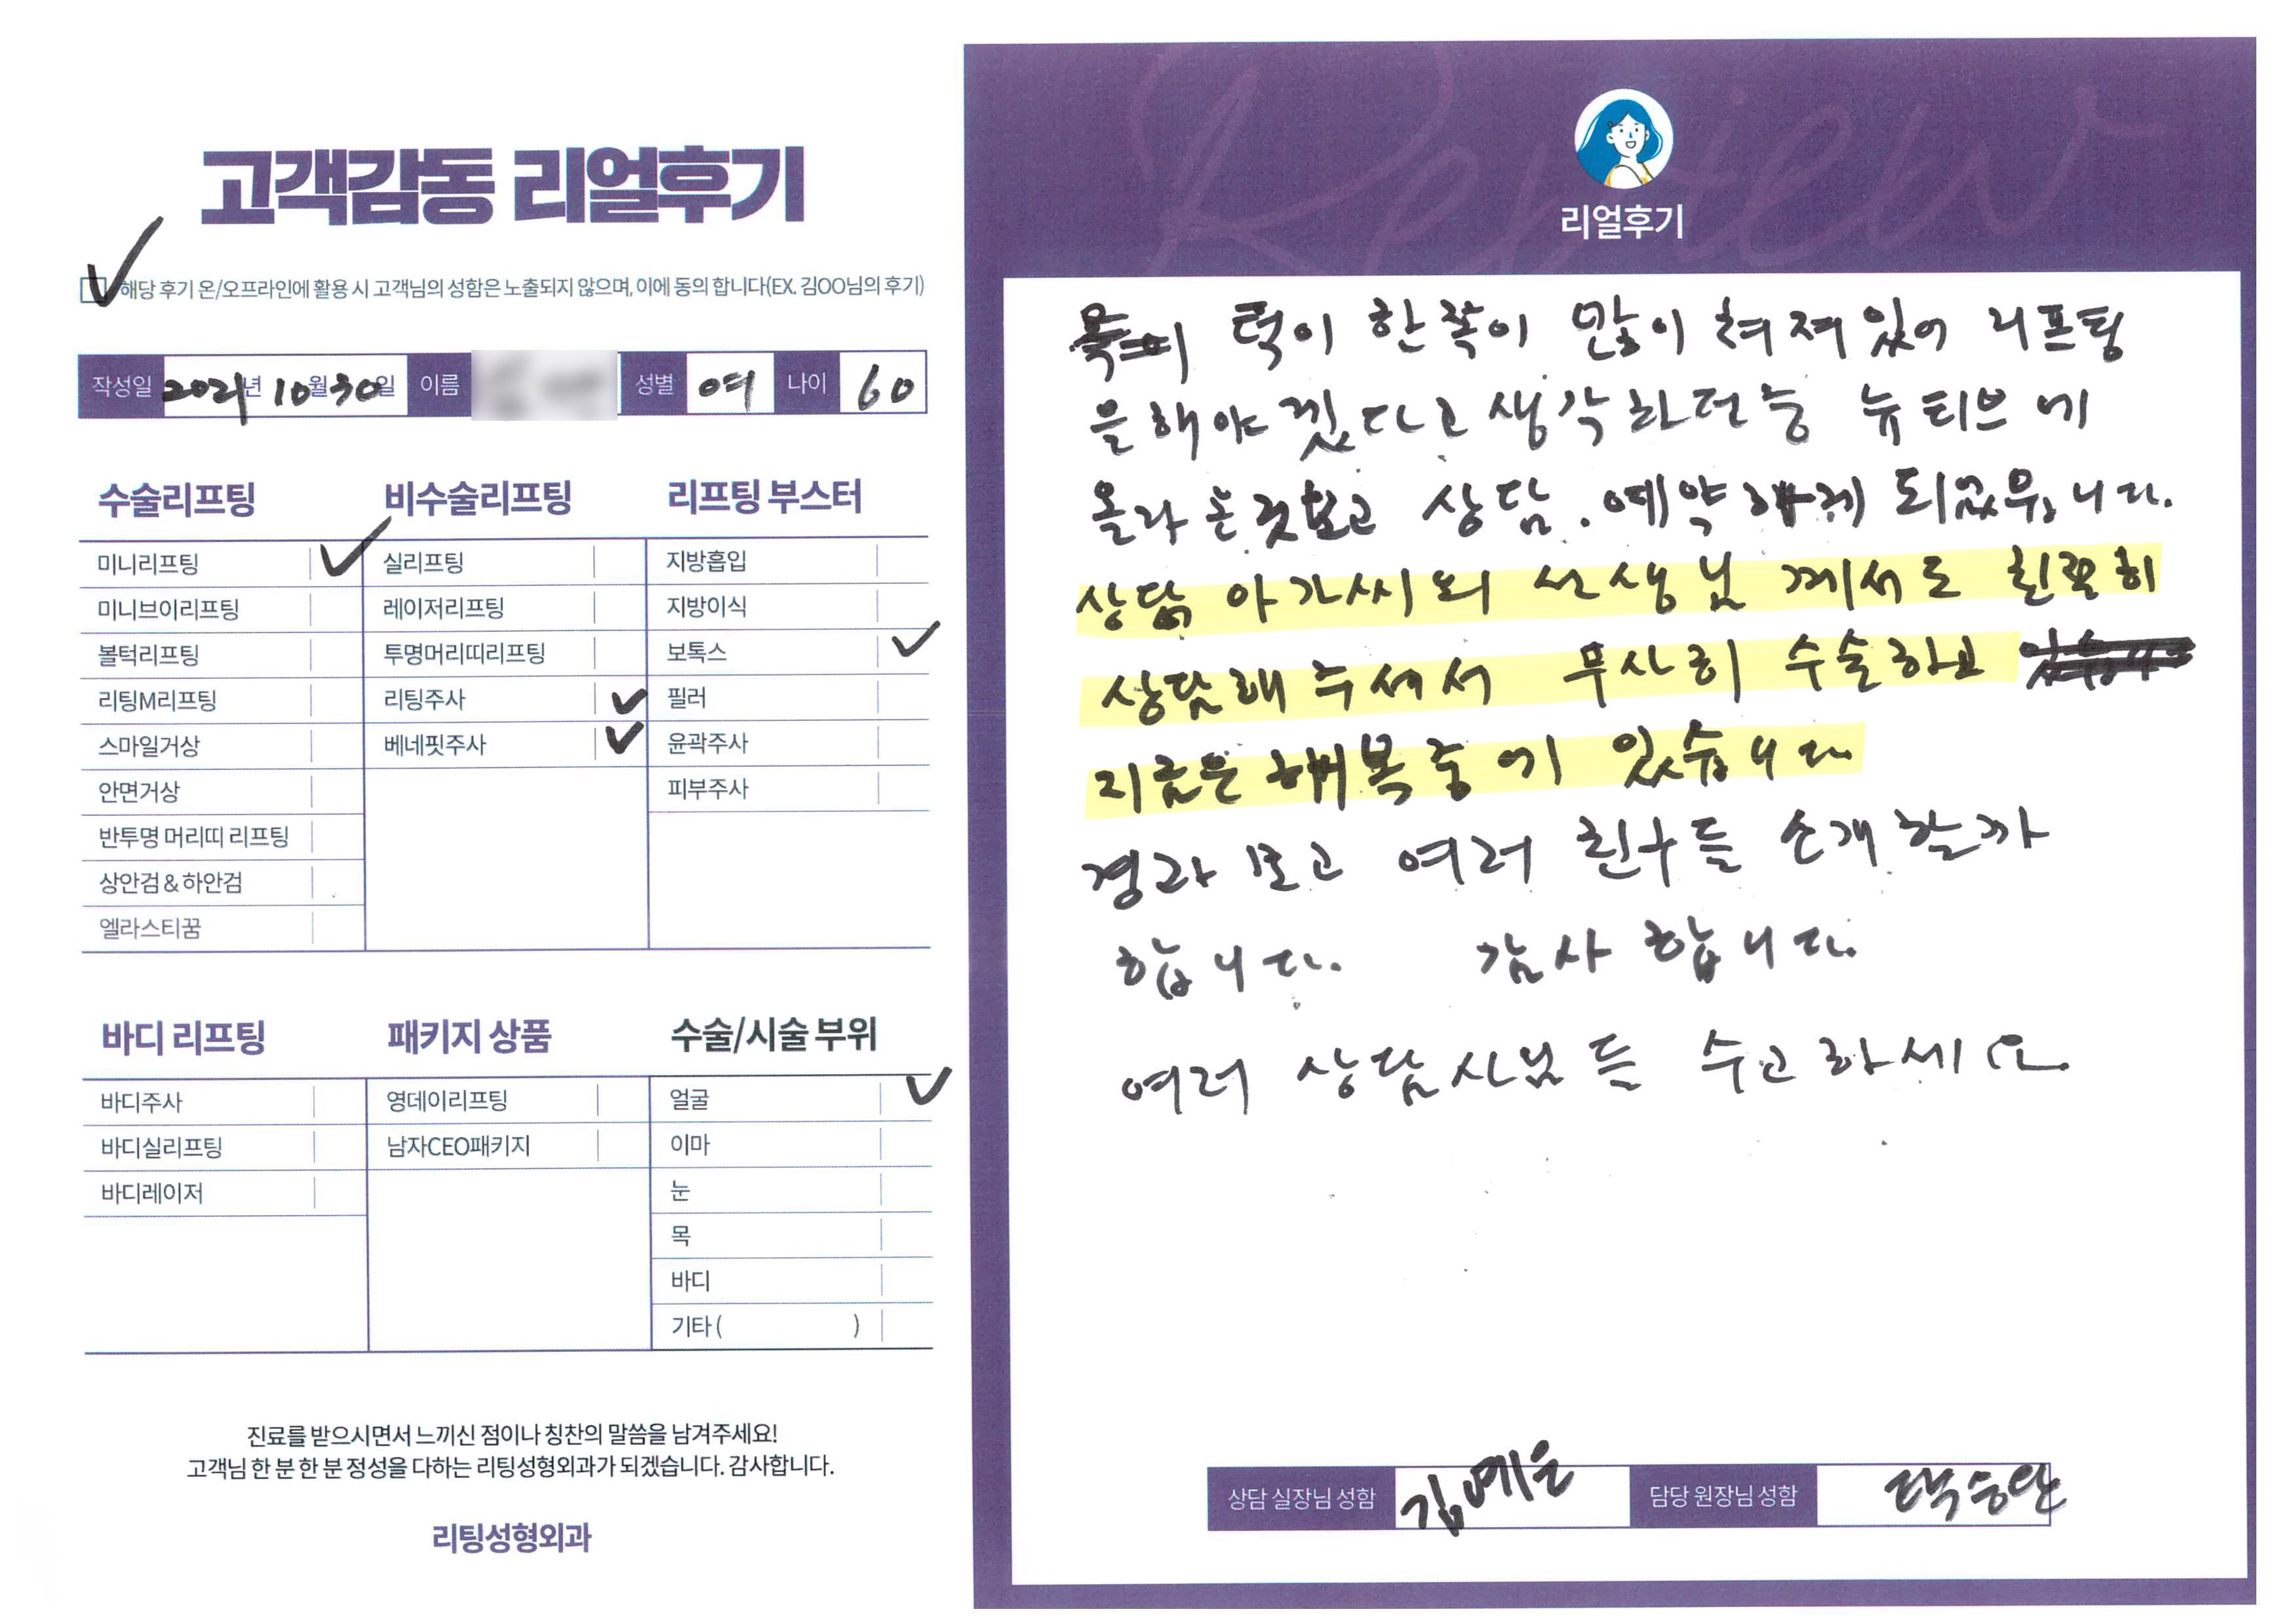 고객감동 리얼후기
해당 후기 온/오프라인에 활용 시 고객님의 성함은 노출되지 않으며, 이에 동의 합니다(EX. 김OO님의 후기)
작성일 2021년 10월 30일 이름 성별 여 나이 60
수술리프팅
미니리프팅
미니브이리프팅
볼턱리프팅
리팅M리프팅
스마일거상
안면거상
반투명 머리띠 리프팅
상안검 & 하안검
엘라스티꿈
비수술리프팅
실리프팅
레이저리프팅
투명머리띠리프팅
리팅주사
베네핏주사
리프팅 부스터
지방흡입
지방이식
보톡스
필러
윤곽주사
피부주사
바디 리프팅
바디주사
바디실리프팅
바디레이저
패키지 상품
영데이리프팅
남자CEO패키지
수술/시술 부위
얼굴
이마
눈
목
바디
기타 ( )
진료를 받으시면서 느끼신 점이나 칭찬의 말씀을 남겨주세요!
고객님 한 분 한 분 정성을 다하는 리팅성형외과가 되겠습니다. 감사합니다.
리팅성형외과
Review
리얼후기
턱이 한쪽이 많이 쳐져있어 리프팅
을 해야겠다고 생각하던중 뉴티브에
올라온것보고 상담. 예약하게 되었읍니다.
상담 아가씨외 선생님 께서도 친절히
상담해 주셔서 무사히 수술하고
지금은 행복중이 있습니다
경과 보고 여러 친구들 소개할까
합니다. 감사 합니다.
여러 상담사님들 수고하세요
상담 실장님 성함 김예은 담당 원장님 성함